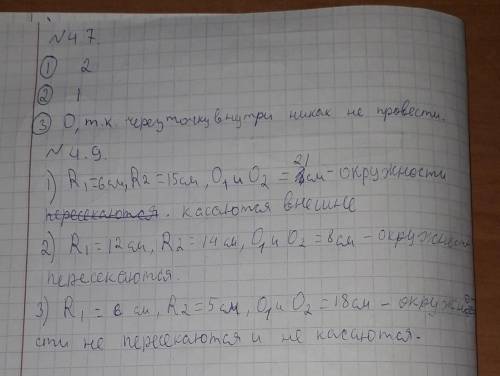 №47.
① 2
② 1
③ 0, т.к. через точку внутри никак не провести.
№4.9.
1) R1=6см, R2=15см, O1 и O2=21см - окружности
пересекаются. касаются внешне
2) R1=12см, R2=14см, O1 и O2=8см - окружности
пересекаются.
3) R1=6 см, R2=5см, O1 и O2=18см - окружно
сти не пересекаются и не касаются.